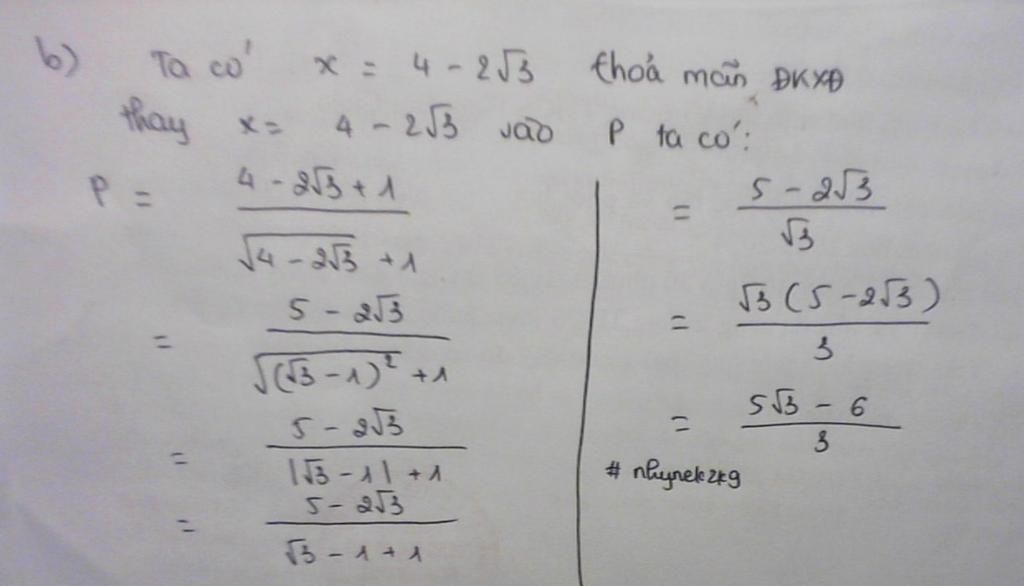 b) Ta có x = 4 - 2√3 thoả mãn ĐKXĐ
thay x = 4 - 2√3 vào P ta có:
P = (4 - 2√3 + 1) / (√(4 - 2√3) + 1)
= (5 - 2√3) / (√((√3 - 1)²) + 1)
= (5 - 2√3) / (|√3 - 1| + 1)
= (5 - 2√3) / (√3 - 1 + 1)
= (5 - 2√3) / √3
= √3(5 - 2√3) / 3
= (5√3 - 6) / 3